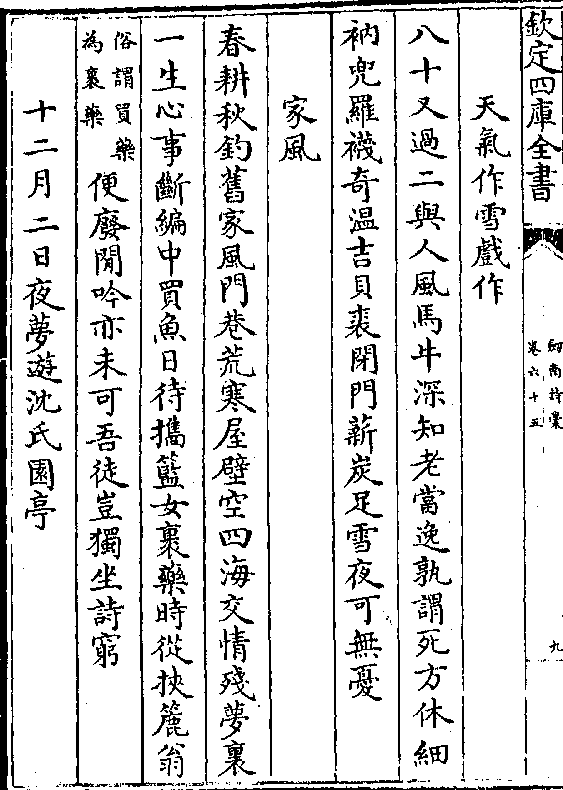 欽定四庫全書
劍南詩稾
卷六十五
九
天氣作雪戲作
八十又過二與人風馬牛深知老當逸孰謂死方休細
衲兜羅襪奇温吉貝裘閉門薪炭足雪夜可無憂
家風
春耕秋釣舊家風門巷荒寒屋壁空四海交情殘夢裏
一生心事斷編中買魚日待攜籃女裹藥時從挾簏翁
俗謂買藥
為裹藥
便廢閒吟亦未可吾徒豈獨坐詩窮
十二月二日夜夢遊沈氏園亭